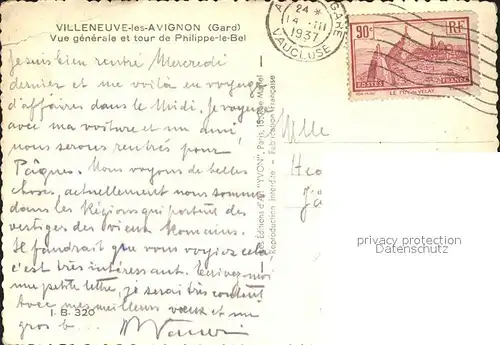 VILLENEUVE-les-AVIGNON (Gard)
Vue générale et tour de Philippe-le-Bel
GARE
24 *
14 - III
1937
VAUCLUSE
90c
RF
POSTES FRANCE
LE PUY-EN-VELAY
Je suis bien rentré Mercredi
dernier et me voilà en voyage
d'affaires dans le Midi. Je voyage
avec ma voiture et un ami
nous serons rentrés pour
Pâques. Nous voyons de belles
choses, actuellement nous sommes
dans les Régions qui portent des
vestiges des vieux Romains.
Il faudrait que vous voyiez cela
c'est très intéressant. Ecrivez-moi
une petite lettre, je serais très content
Avec mes meilleurs vœux et un
gros b...
I. B. 320
Les Editions d'Art "YVON", Paris, 15, Rue Martel
Reproduction interdite - Fabrication Française
Mlle
privacy protection
Datenschutz